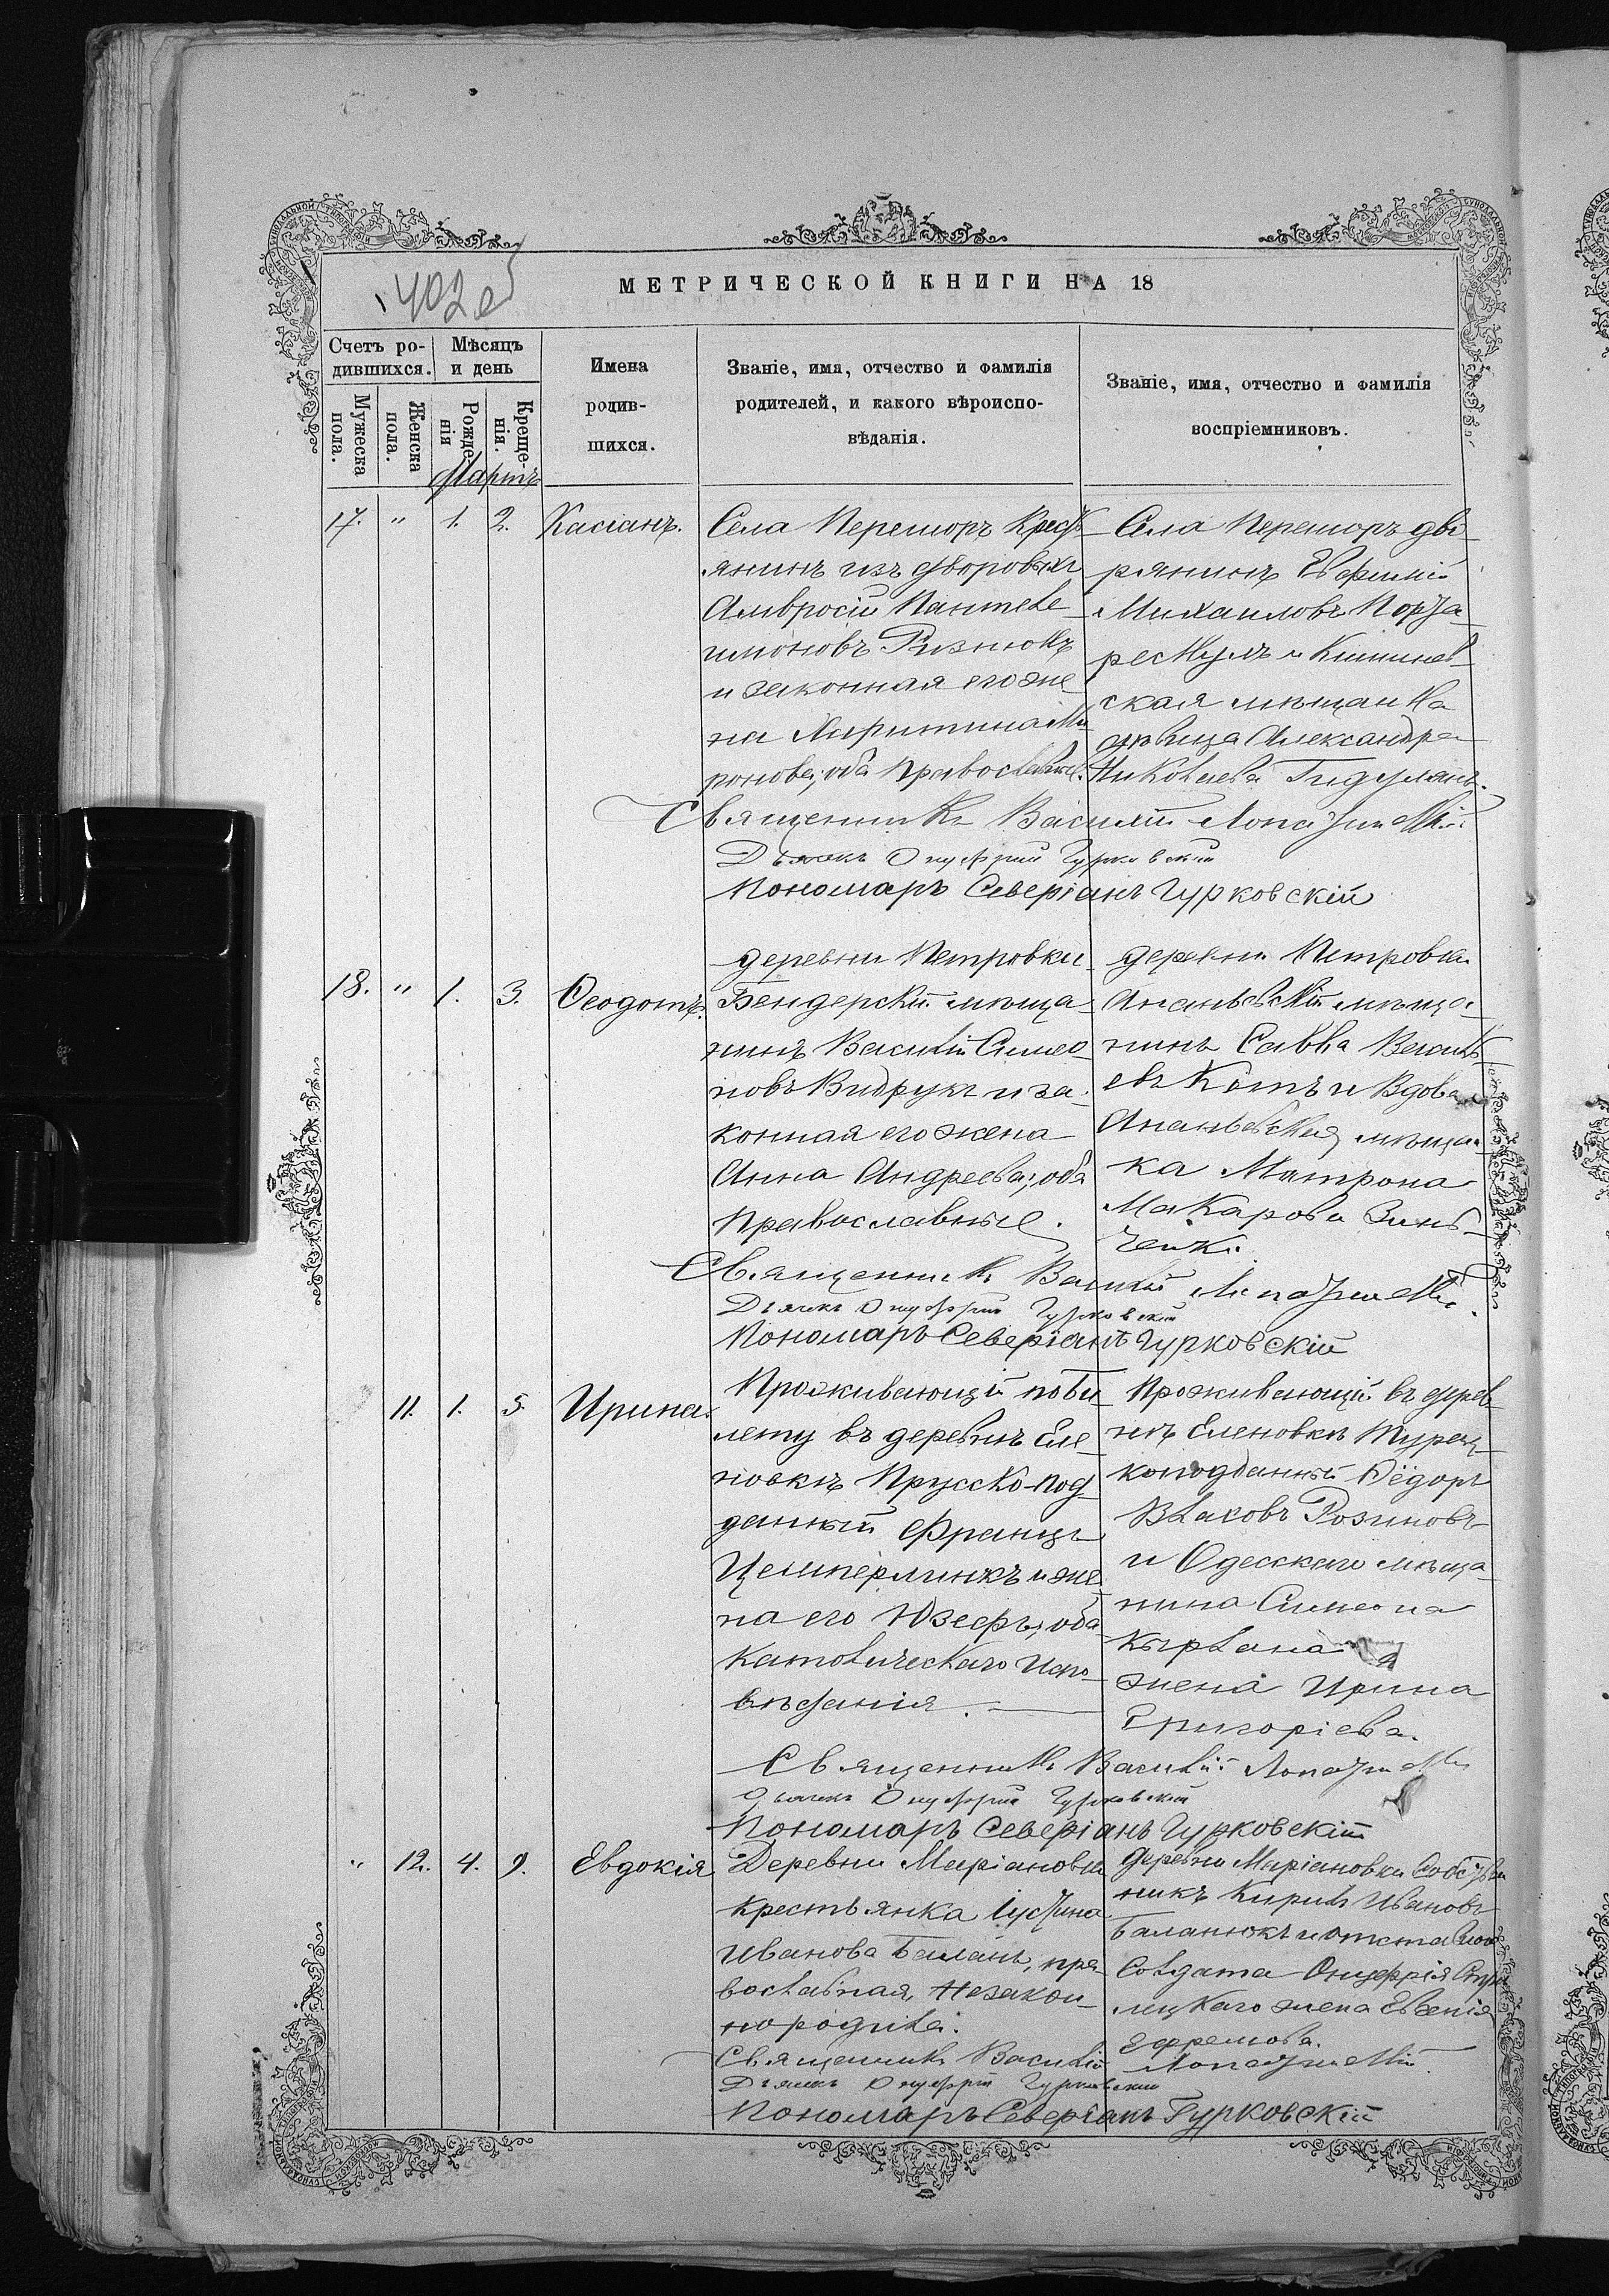 402 об
МЕТРИЧЕСКОЙ КНИГИ НА 18
Счетъ ро-
дившихся.
Мѣсяцъ
и день
Мужеска
пола.
Женска
пола.
Рожде-
нія
Креще-
нія.
Мартъ
Имена
родив-
шихся.
Званіе, имя, отчество и фамилія
родителей, и какого вѣроиспо-
вѣданія.
Званіе, имя, отчество и фамилія
воспріемниковъ.
17. " 1. 2. Касіанъ.
Села Перешоръ Крест
янинъ изъ дворовыхъ
Амвросій Пантеле
имоновъ Ризнюкъ
и законная его же
на Харитина Ми
ронова; оба православн.
Села Перешоръ дво
рянинъ Евфимій
Михаиловъ
и Кишинев
ская мѣщанка
дѣвица Александра
Николаева Гидулянъ.
Священникъ Василій
Дьячекъ Онуфрій Гурковскій
Пономарь Северіанъ Гурковскій
18. " 1. 3. Ѳеодотъ.
деревни Петровки
Бендерскій мѣща
нинъ Василій Симео
новъ Видрукъ и за
конная его жена
Анна Андреева; оба
Православные.
деревни Петровки
Ананьевскій мѣща
нинъ Савва Василь
евъ Котъ и Вдова
Ананьевская мѣщан
ка Матрона
Макарова Зинь
чейк.
Священникъ Василій
Дьячекъ Онуфрій Гурковскій
Пономарь Северіанъ Гурковскій
11. 1. 5. Ирина.
Проживающій по би
лету въ деревнѣ Еле
новкѣ Прусско-под
данный Францъ
Цемперлинкъ и же
на его Юзефъ; оба
католическаго испо
вѣданія.
Проживающій въ дерев
нѣ Еленовкѣ Турец
коподданный Ѳёдоръ
Влаховъ Розиновъ
и Одесскаго мѣща
нина Симеона
Кырлана
жена Ирина
Григоріева.
Священникъ Василій
Дьячекъ Онуфрій Гурковскій
Пономарь Северіанъ Гурковскій
" 12. 4. 9. Евдокія
Деревни Маріановки
крестьянка Іустина
Иванова Баланъ, пра
вославная, незакон
но родила.
деревни Маріановки Собствен
никъ Кирилъ Ивановъ
Баланюкъ и отставного
Солдата Онуфрія
жена Евгенія
Ефремова.
Священникъ Василій
Дьячекъ Онуфрій Гурковскій
Пономарь Северіанъ Гурковскій